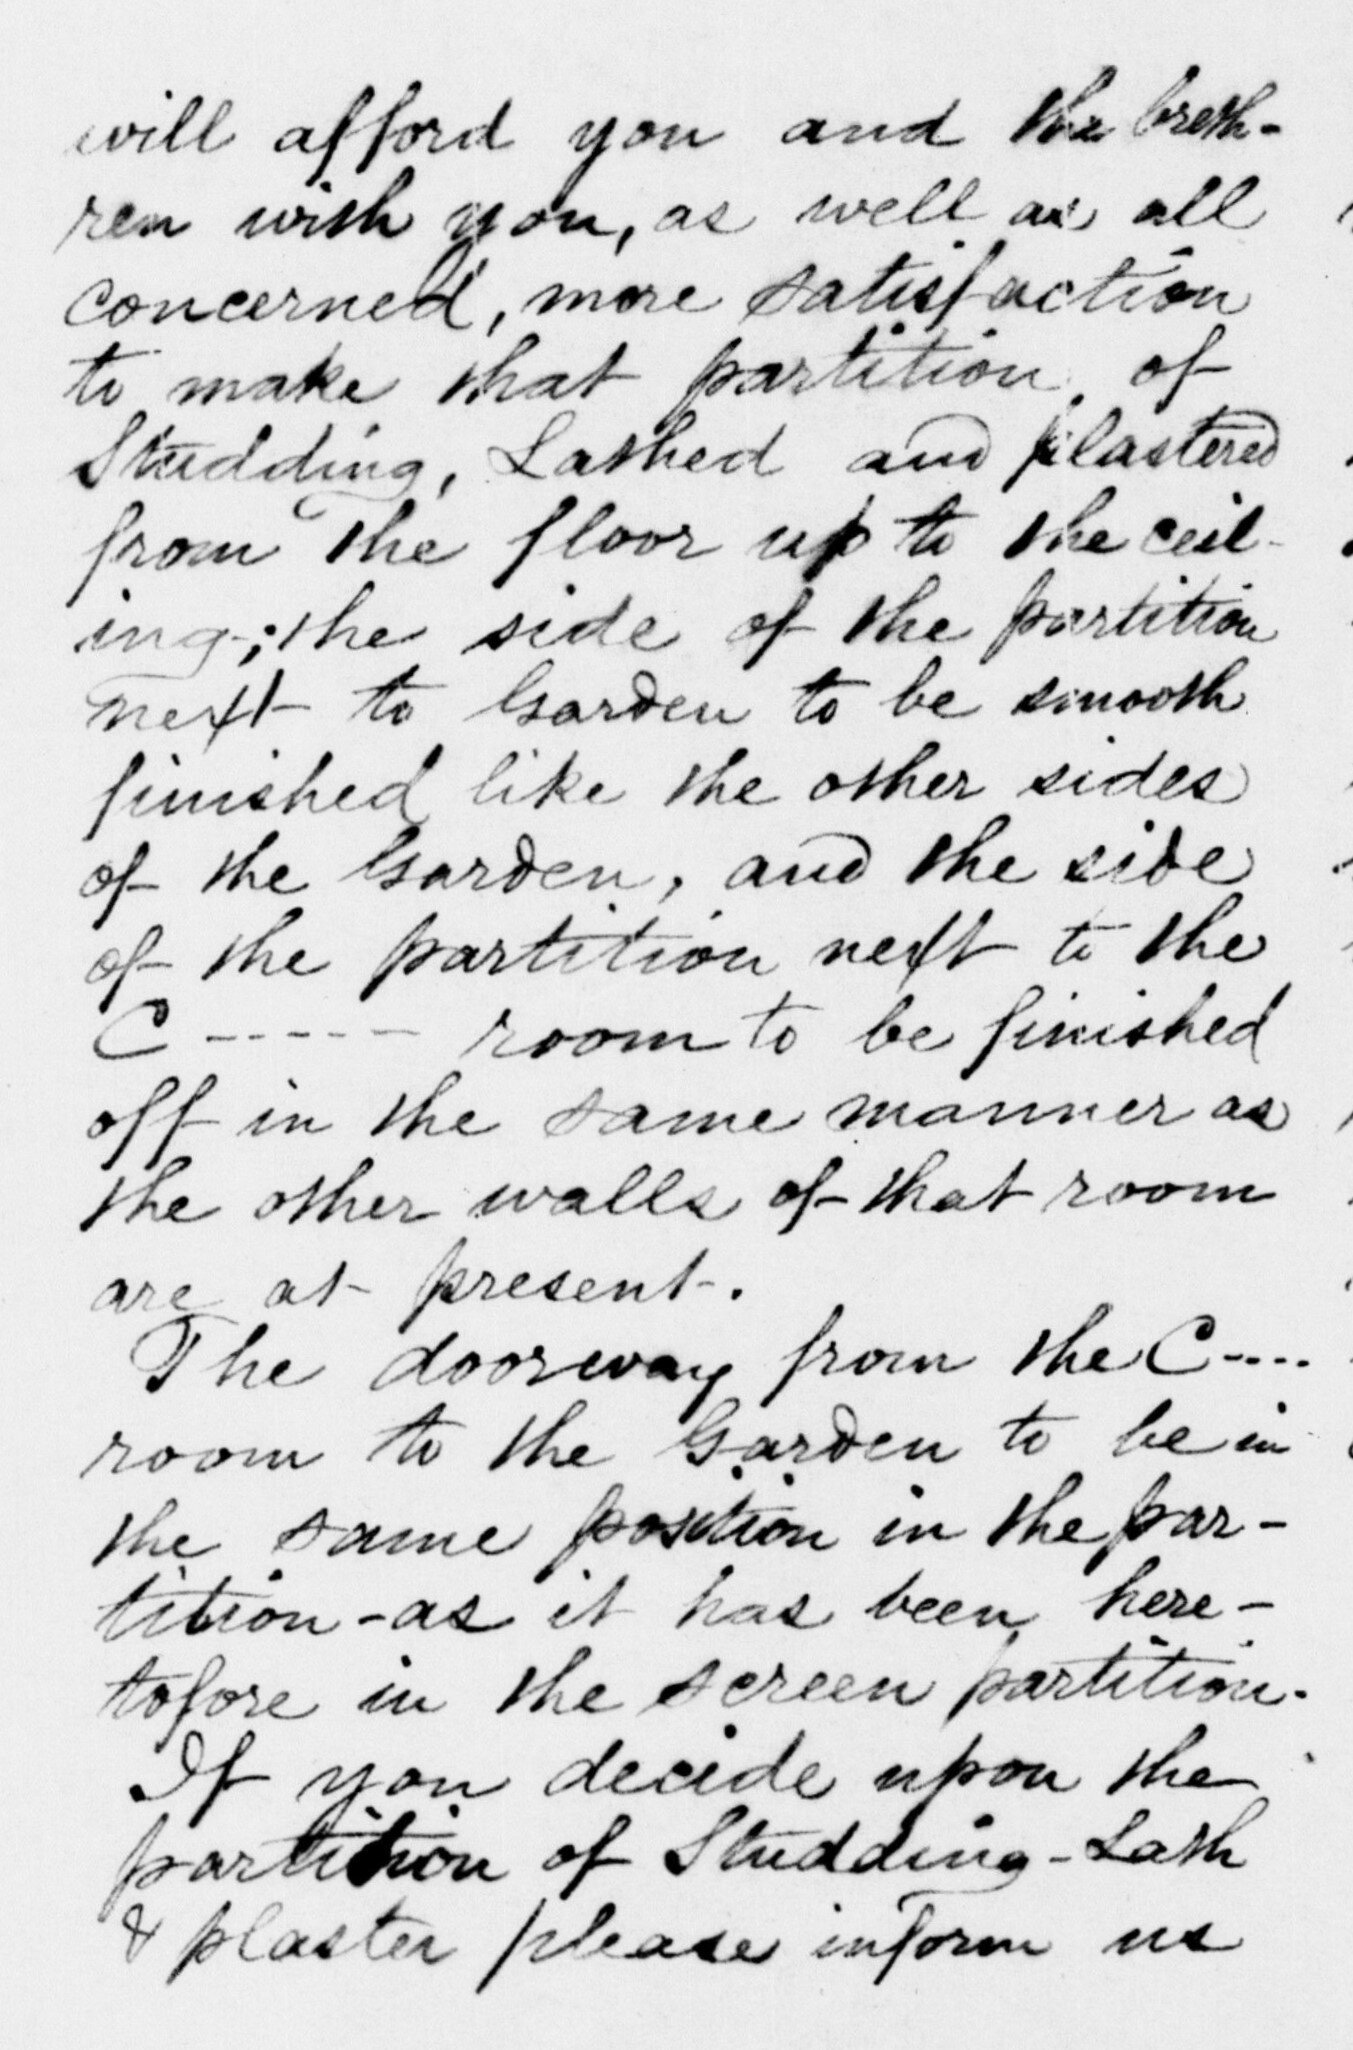 will afford you and the breth-
ren with you, as well as all
concerned, more satisfaction
to make that partition of
Studding, Lathed and plastered
from the floor up to the ceil-
ing; the side of the partition
next to Garden to be smooth
finished like the other sides
of the Garden, and the side
of the partition next to the
C----- room to be finished
off in the same manner as
the other walls of that room
are at present.
The doorway from the C----
room to the Garden to be in
the same position in the par-
tition - as it has been here-
tofore in the screen partition.
If you decide upon the
partition of Studding - Lath
& plaster please inform us